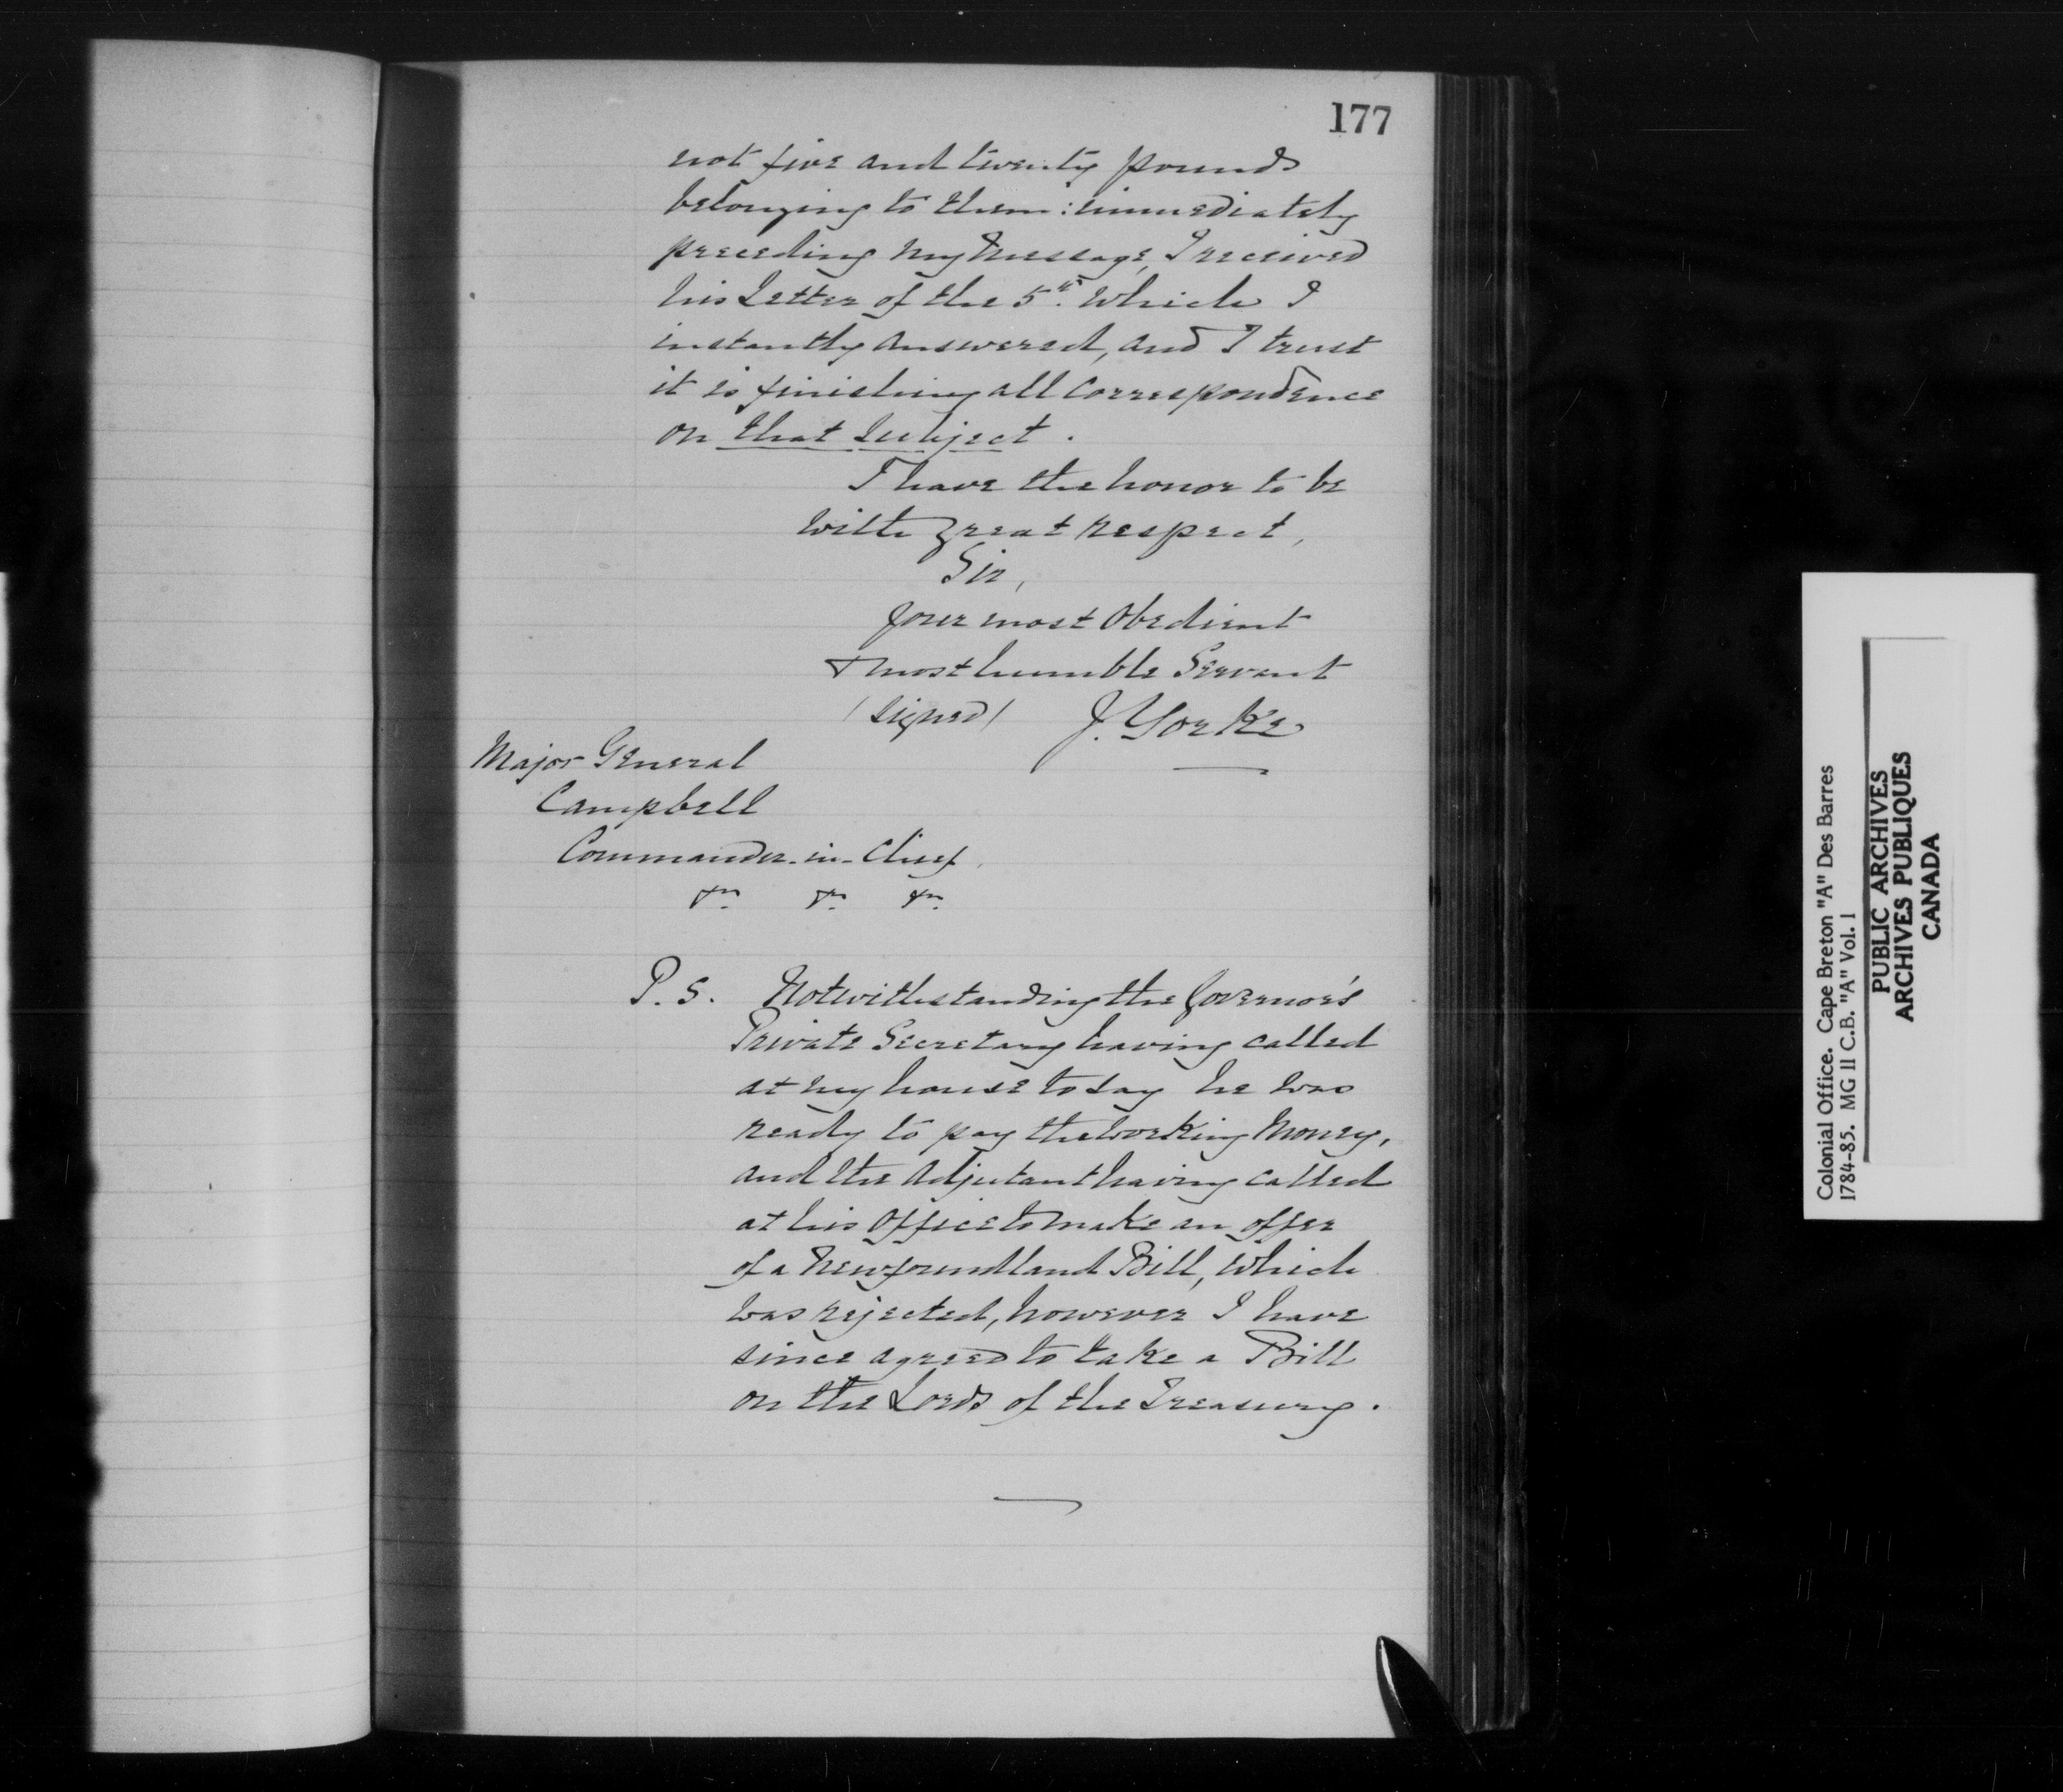 177
not five and twenty pounds
belonging to them: immediately
preceding my Message, I received
his Letter of the 5th. which I
instantly answered, and I trust
it is finishing all correspondence
on that subject.
I have the honor to be
with great respect,
Sir,
Your most Obedient
& most humble Servant
(signed) J. Yorke
Major General
Campbell
Commander-in-Chief,
&c. &c. &c.
P. S. Notwithstanding the Governor's
Private Secretary having called
at my house to say he was
ready to pay the working money,
and the Adjutant having called
at his Office to make an offer
of a Newfoundland Bill, which
was rejected, however I have
since agreed to take a Bill
on the Lords of the Treasury.
Colonial Office. Cape Breton "A" Des Barres
1784-85. MG 11 C.B. "A" Vol. 1
PUBLIC ARCHIVES
ARCHIVES PUBLIQUES
CANADA